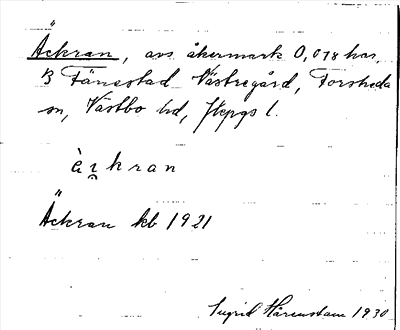 Äckran, avs åkermark 0,078 har,
B Fänestad Västregård, Forsheda
sn, Västbo hd, Jkpgs l.
àɛkran
Äckran kb 1921
Ingrid Hårenstam 1930